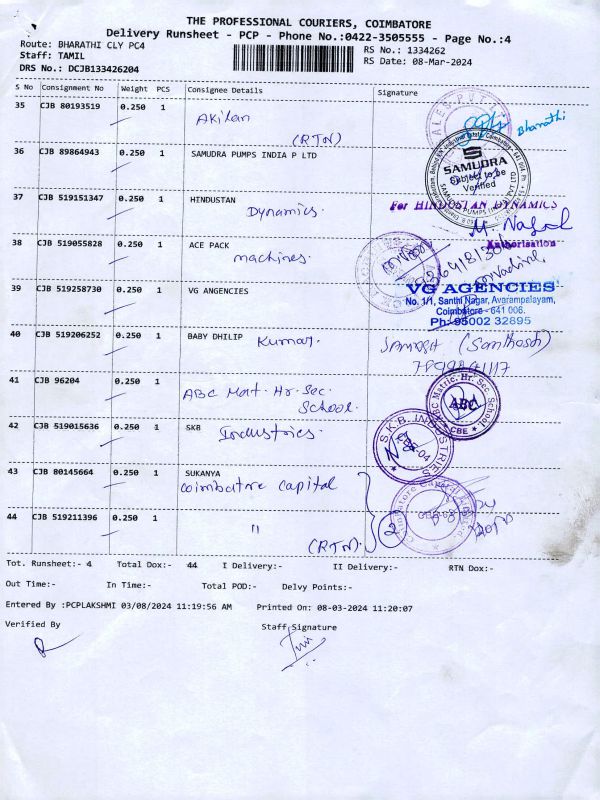 THE PROFESSIONAL COURIERS, COIMBATORE
Delivery Runsheet - PCP - Phone No.:0422-3505555 - Page No.:4
Route: BHARATHI CLY PC4
RS No.: 1334262
Staff: TAMIL
RS Date: 08-Mar-2024
DRS No.: DCJB133426204
S No Consignment No Weight PCS Consignee Details Signature
35 CJB 80193519 0.250 1 Akilan
(RTN) Bharathi
36 CJB 89864943 0.250 1 SAMUDRA PUMPS INDIA P LTD
SAMUDRA
Subject to be
Verified
37 CJB 519151347 0.250 1 HINDUSTAN
Dynamics. For HINDUSTAN DYNAMICS
Authorisation
38 CJB 519055828 0.250 1 ACE PACK
machines.
39 CJB 519258730 0.250 1 VG ANGENCIES
VG AGENCIES
No. 1/1, Santhi Nagar, Avarampalayam,
Coimbatore - 641 006.
Ph: 95002 32895
40 CJB 519206252 0.250 1 BABY DHILIP Kumar.
(Santhosh)
41 CJB 96204 0.250 1 ABC Mat. Hr. Sec.
School.
ABC Matric. Hr. Sec. School
ABC
CBE
42 CJB 519015636 0.250 1 SKB
Industries.
S.K.B. INDUSTRIES
43 CJB 80145664 0.250 1 SUKANYA
Coimbatore Capital
44 CJB 519211396 0.250 1 "
(RTN) 2
Tot. Runsheet:- 4 Total Dox:- 44 I Delivery:- II Delivery:- RTN Dox:-
Out Time:- In Time:- Total POD:- Delvy Points:-
Entered By :PCPLAKSHMI 03/08/2024 11:19:56 AM Printed On: 08-03-2024 11:20:07
Verified By Staff Signature